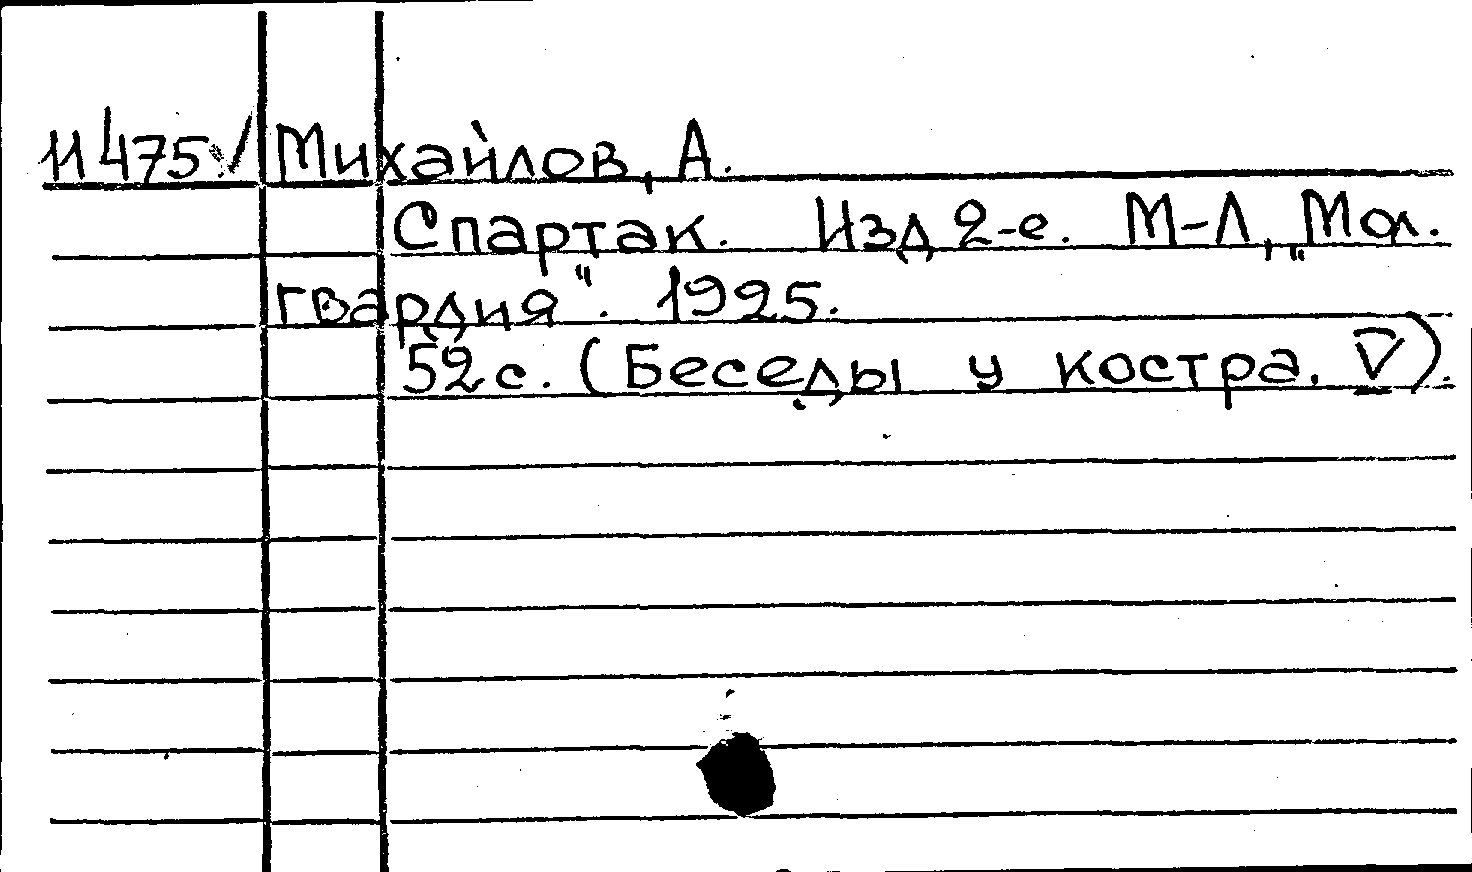 11475√ Михайлов, А.
Спартак. Изд 2-е. М-Л, „Мол.
гвардия". 1925.
52 с. (Беседы у костра. V).